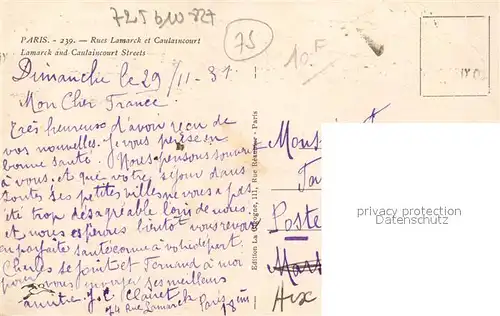 725 bW 827
75
10.F
PARIS. - 239. — Rues Lamarck et Caulaincourt
Lamarck and Caulaincourt Streets
Dimanche le 29/11-31
Mon Cher France
Très heureuse d'avoir reçu de
vos nouvelles. Je vous pense en
bonne santé. Nous pensons souvent
à vous. et que votre séjour dans
toutes ses petites villes ne vous a pas
été trop désagréable loin de nous.
et nous espérons bientôt vous revoir
en parfaite santé comme à votre départ.
Charles se joint et Fernand à moi
pour vous envoyer ses meilleurs
amitiés J. C. Clairet
74 Rue Lamarck Paris
18 èm
Edition La Cigogne, 11, Rue Réaumur - Paris
Poste
Aix
privacy protection
Datenschutz